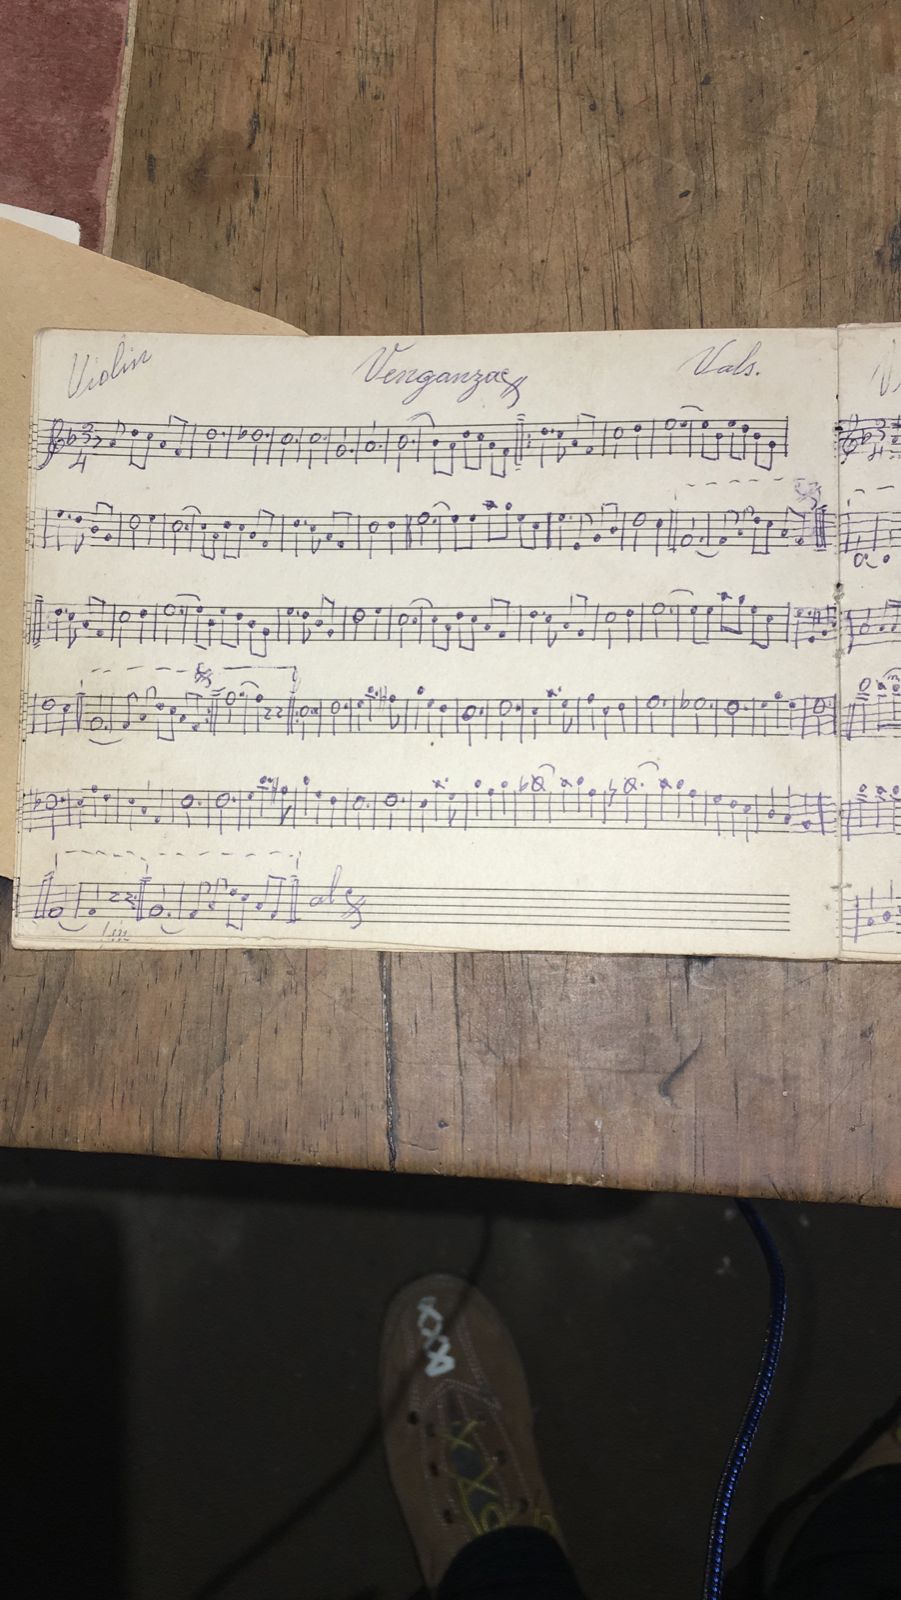 Violin Venganza Vals.
3
4
al